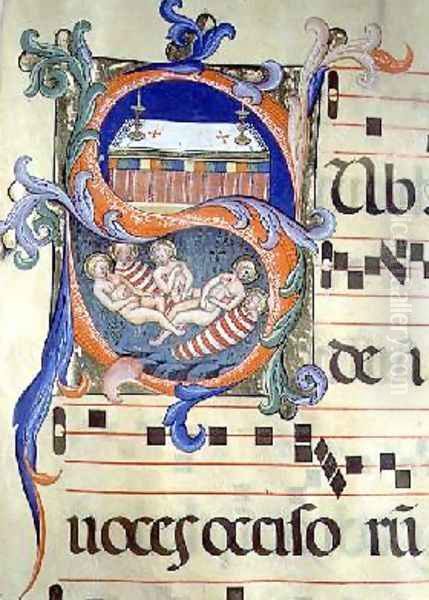 Sub
de i
voces occiso rũ